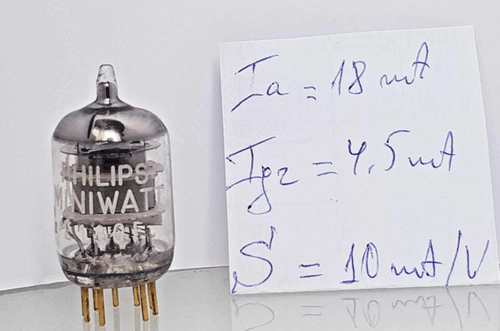 PHILIPS
MINIWATT
Ia = 18 mA
Ig2 = 4,5 mA
S = 10 mA/V